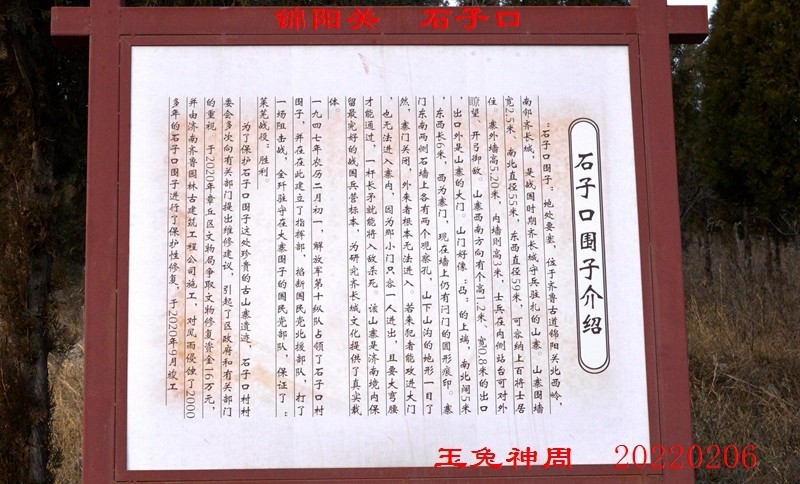 锦阳关 石子口
石子口围子介绍
“石子口围子”地处要塞，位于齐鲁古道锦阳关北西岭，
南邻齐长城，是战国时期齐长城守兵驻扎的山寨。山寨围墙
宽2.5米、南北直径55米、东西直径59米，可容纳上百将士居
住。寨外墙高5.20米，内墙则高3米，士兵在内侧站台可对外
瞭望、开弓御敌。山寨西南方向有个高1.2米、宽0.8米的出口
，出口外是山寨的大门。山门好像“凸”的上端，南北阔5米
，东西长6米，西为寨门，现在墙上仍有闩门的圆形痕印。寨
门东南两侧石墙上各有两个观察孔，山下山沟的地形一目了
然，寨门关闭，外来者根本无法进入。若来犯者能攻进大门
，也无法进入寨内，因为那小门只容一人进出，且要大弯腰
才能通过，一杆长矛就能将入敌杀死。该山寨是济南境内保
留最完好的战国兵营标本，为研究齐长城文化提供了真实载
体。
一九四七年农历二月初一，解放军第十纵队占领了石子口村
围子，并在在此建立了指挥部，掐断国民党北援部队，打了
一场阻击战，全歼驻守在大寨围子的国民党部队，保证了“
莱芜战役”胜利。
为了保护石子口围子这处珍贵的古山寨遗迹，石子口村村
委会多次向有关部门提出维修建议，引起了区政府和有关部门
的重视。于2020年章丘区文物局争取文物修复资金16万元，
并由济南齐鲁园林古建筑工程公司施工，对风雨侵蚀了2000
多年的石子口围子进行了保护性修复，于2020年9月竣工
玉兔神周 20220206